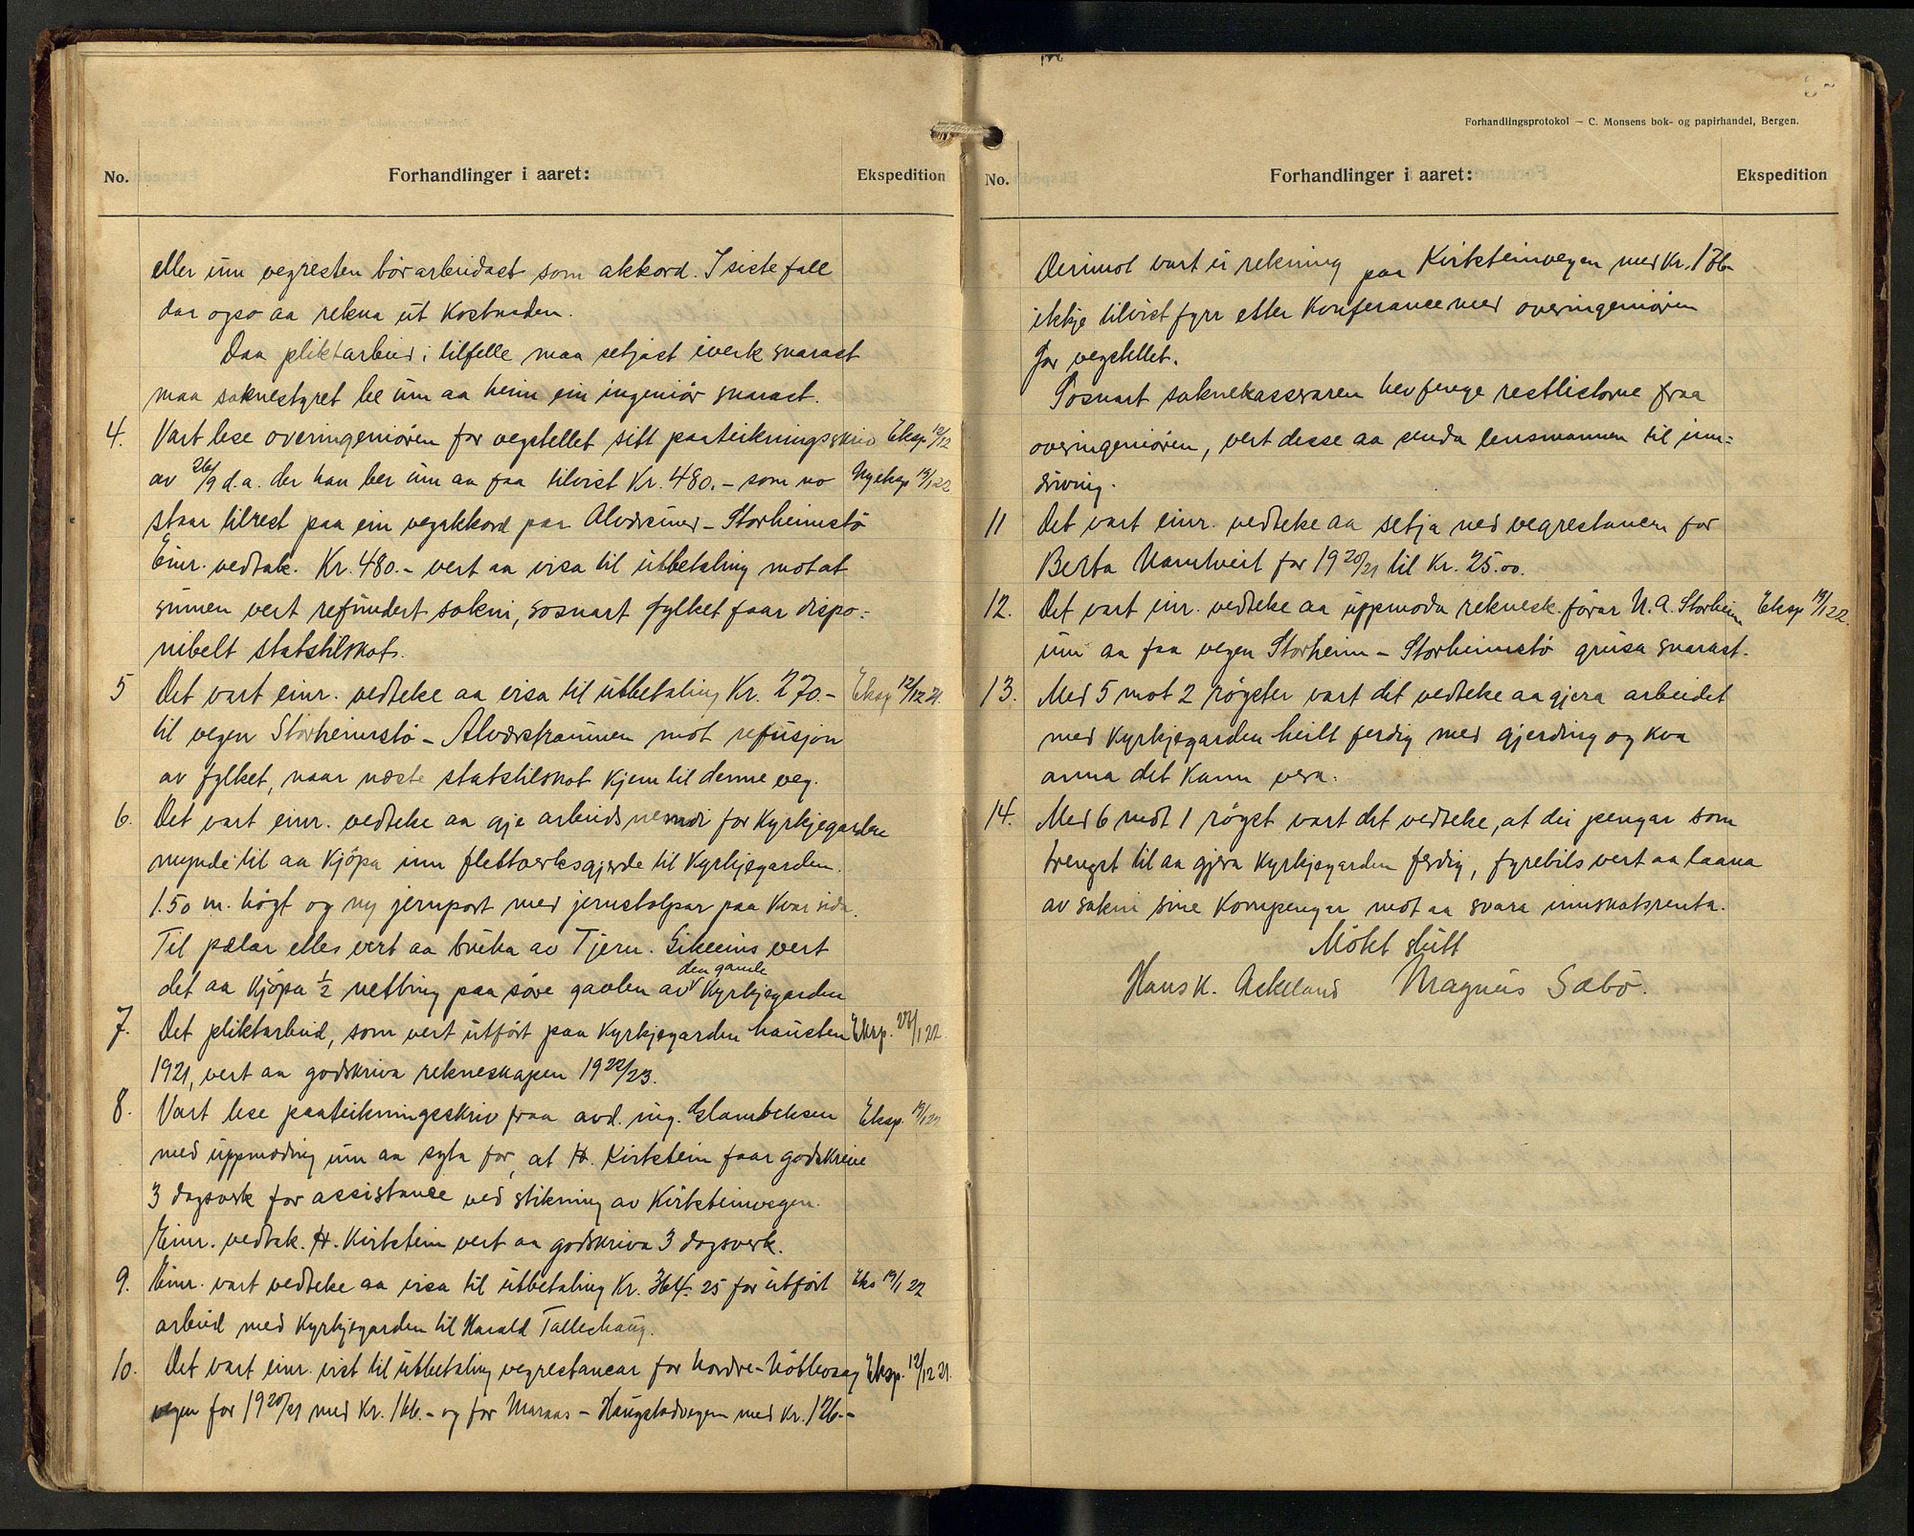 No.
Forhandlinger i aaret:
Ekspedition
eller um vegresten bör arbeidast som akkord. I siste fall
dar ogso aa rekna ut kostnaden.
Daa pliktarbeid i tilfelle maa setjast iverk snarast
maa soknestyret be um aa heim ein ingeniör snarast.
4. Vart lese overingeniören for vegstellet sitt paateikningsskriv Eksp 12/12
av 26/9 d.a. der han ber um aa faa tilvist Kr. 480.- som no Ny eksp 19/1 22
staar tilrest paa ein vegakkord paa Alversund - Storheimstö
Einr. vedtak. Kr. 480.- vert aa visa til utbetaling mot at
sumen vert refundert sokni, sosnart fylket faar dispo-
nibelt statstilskot.
5 Det vart einr. vedteke aa visa til utbetaling Kr. 270.- Eksp 12/12 21.
til vegen Storheimstö - Alverstraumen mot refusjon
av fylket, naar næste statstilskot kjem til denne veg.
6. Det vart einr. vedteke aa gje arbeidsnemdi for Kyrkjegardane
mynde til aa kjöpa inn flettverksgjerde til Kyrkjegarden.
1.50 m. högt og ny jernport med jernstolpar paa kvar side.
Til pælar elles vert aa bruka av Tjern. Likeeins vert
det aa kjöpa 1/2 netting paa söre gavlen av den gamle Kyrkjegarden
7. Det pliktarbeid, som vert utfört paa Kyrkjegarden hausten Eksp. 28/1 22
1921, vert aa godskriva rekneskapen 1922/23.
8. Vart lese paateikningsskriv fraa avd. ing. Glambeksen Eksp. 19/1 22
med uppmoding um aa syta for, at H. Kirkstein faar godskrive
3 dagsverk for assistanse ved stikning av Kirksteinvegen.
Einr. vedtak. H. Kirkstein vert aa godskriva 3 dagsverk.
9. Einr. vart vedteke aa visa til utbetaling Kr. 364.25 for utfört Eks 19/1 22
arbeid med Kyrkjegarden til Harald Tallehaug.
10. Det vart einr. vist til utbetaling vegrestansar for Nordre - Eksp. 12/12 21.
vegen for 1920/21 med Kr. 166.- og for Maraas - Haugstadvegen med Kr. 126.-
Forhandlingsprotokol – C. Monsens bok- og papirhandel, Bergen.
No.
Forhandlinger i aaret:
Ekspedition
Derimot vart ei rekning paa Kirksteinvegen med Kr. 176-
ikkje tilvist fyrr etter konferanse med overingeniören
for vegstellet.
Sosnart soknekasseraren hev fenge restlistorne fraa
overingeniören, vert desse aa senda lensmannen til inn-
driving.
11 Det vart einr. vedteke aa setja ned vegrestansen for
Berta Namtveit for 1920/21 til Kr. 25.00.
12. Det vart einr. vedteke aa uppmoda reknesk.förar N. A. Storheim Eksp 19/1 22.
um aa faa vegen Storheim - Storheimstö grusa snarast.
13. Med 5 mot 2 röyster vart det vedteke aa gjera arbeidet
med Kyrkjegarden heilt ferdig med gjerding og kva
anna det kann vera.
14. Med 6 mot 1 röyst vart det vedteke, at dei pengar som
trengst til aa gjera Kyrkjegarden ferdig, fyrebils vert aa laana
av sokni sine Kornpengar mot aa svara innskotsrenta.
Mötet slutt
Hans K. Askeland Magnus Sæbö.